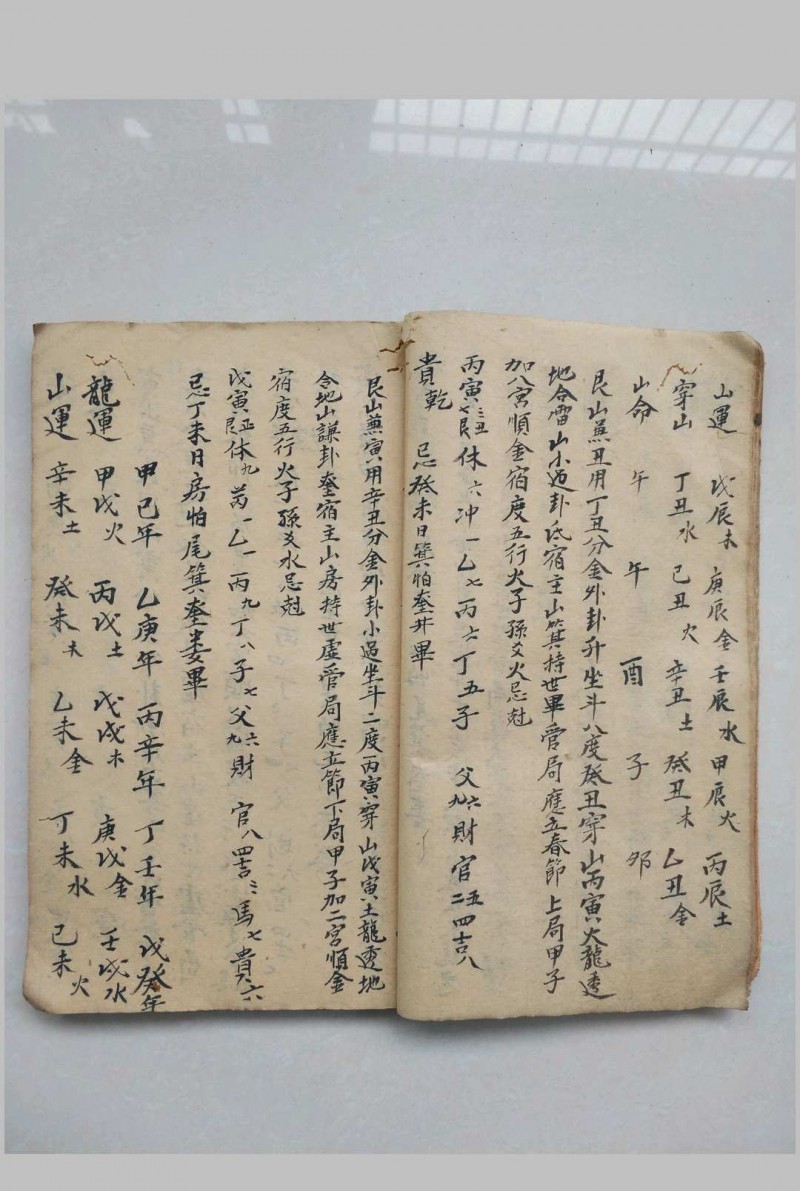 山運 戊辰木 庚辰金 壬辰水 甲辰火 丙辰土
穿山 丁丑水 己丑火 辛丑土 癸丑木 乙丑金
山命 午 午 酉 子 卯
艮山兼丑用丁丑分金外卦升坐斗八度癸丑穿山丙寅火龍透
地合雷山小过卦氐宿主山箕持世畢管局應立春節上局甲子
加八宮順金宿度五行火子孫爻火忌尅
丙寅三丑七艮休六冲一乙七丙六丁五子 父六九財官五二四吉八
貴乾 忌癸未日箕怕奎井畢
艮山兼寅用辛丑分金外卦小過坐斗二度丙寅穿山戊寅土龍透地
合地山謙卦奎宿主山房持世虛管局應立節下局甲子加二宮順金
宿度五行火子孫爻水忌尅
戊寅艮休九芮一乙一丙九丁八子七父六九財 官八四吉三馬七貴六
忌丁未日房怕尾箕奎婁畢
甲己年 乙庚年 丙辛年 丁壬年 戊癸年
龍運 甲戌火 丙戌土 戊戌木 庚戌金 壬戌水
山運 辛未土 癸未木 乙未金 丁未水 己未火